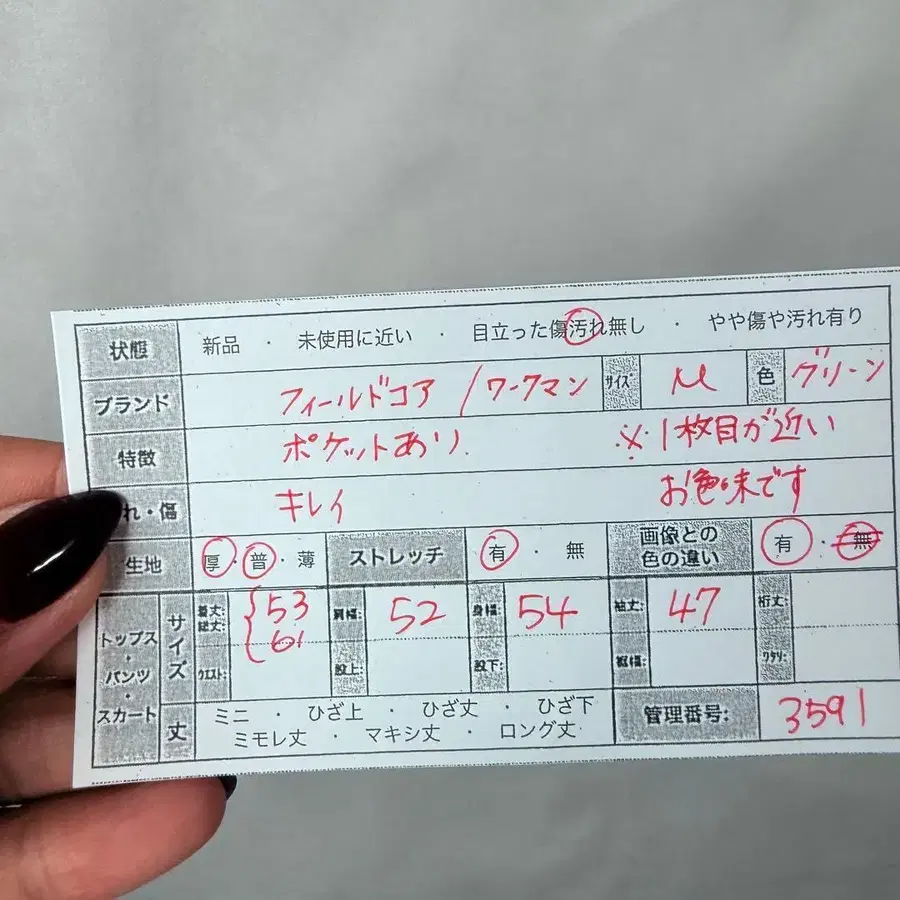 状態 新品 ・ 未使用に近い ・ 目立った傷汚れ無し ・ やや傷や汚れ有り
ブランド フィールドコア / ワークマン サイズ M 色 グリーン
特徴 ポケットあり ※1枚目が近い
れ・傷 キレイ お色味です
生地 厚・普・薄 ストレッチ 有 ・ 無 画像との色の違い 有 ・ 無
トップス・パンツ・スカート サイズ 着丈: 総丈: 53 61 肩幅: 52 身幅: 54 袖丈: 47 裄丈:
ウエスト: 股上: 股下: 裾幅: ワタリ:
丈 ミニ ・ ひざ上 ・ ひざ丈 ・ ひざ下
ミモレ丈 ・ マキシ丈 ・ ロング丈
管理番号: 3591